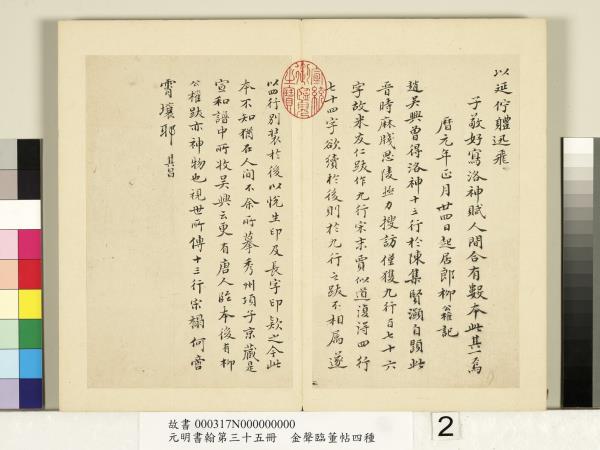 以延佇體迅飛
子敬好寫洛神賦人間合有數本此其一焉
曆元年正月廿四日起居郎柳公權記
趙吳興曾得洛神十三行於陳集賢灝自題此
晉時麻牋思陵極力搜訪僅獲九行百七十六
字故米友仁跋作九行宋末賈似道復得四行
七十四字欲續於後則於九行之跋不相屬遂
以四行別裝於後以悅生印及長字印款之今此
本不知猶在人間不余所摹秀州項子京藏是
宣和譜中所收吳興云更有唐人臨本後有柳
公權跋亦神物也視世所傳十三行宋搨何啻
霄壤耶 其昌
宣統御覽之寶
故書 000317N000000000
元明書翰第三十五冊 金聲臨董帖四種
2